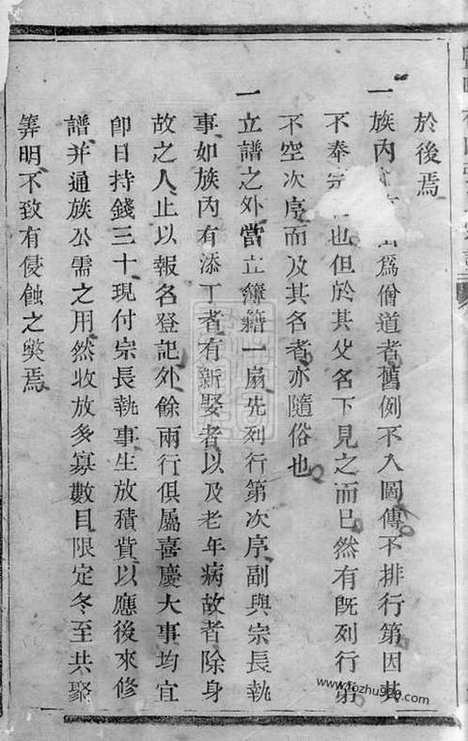 於後焉
一族內爲僧道者舊例不入圖傳不排行第因其
不奉宗也但於其父名下見之而已然有旣列行第
不空次序而及其名者亦隨俗也
一立譜之外嘗立簿籍一扇先列行第次序副與宗長執
事如族內有添丁者有新娶者以及老年病故者除身
故之人止以報名登記外餘兩行俱屬喜慶大事均宜
卽日持錢三十現付宗長執事生放積貲以應後來修
譜并通族公需之用然收放多寡數目限定冬至共聚
筭明不致有侵蝕之獘焉
www.fozhu920.com